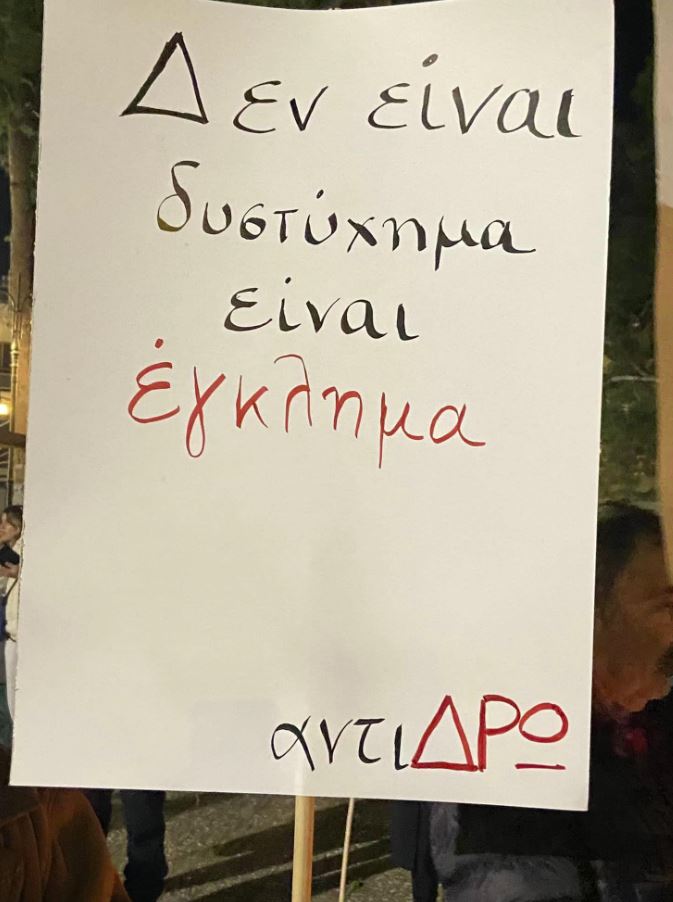 Δεν είναι
δυστύχημα
είναι
έγκλημα
αντιΔΡΩ